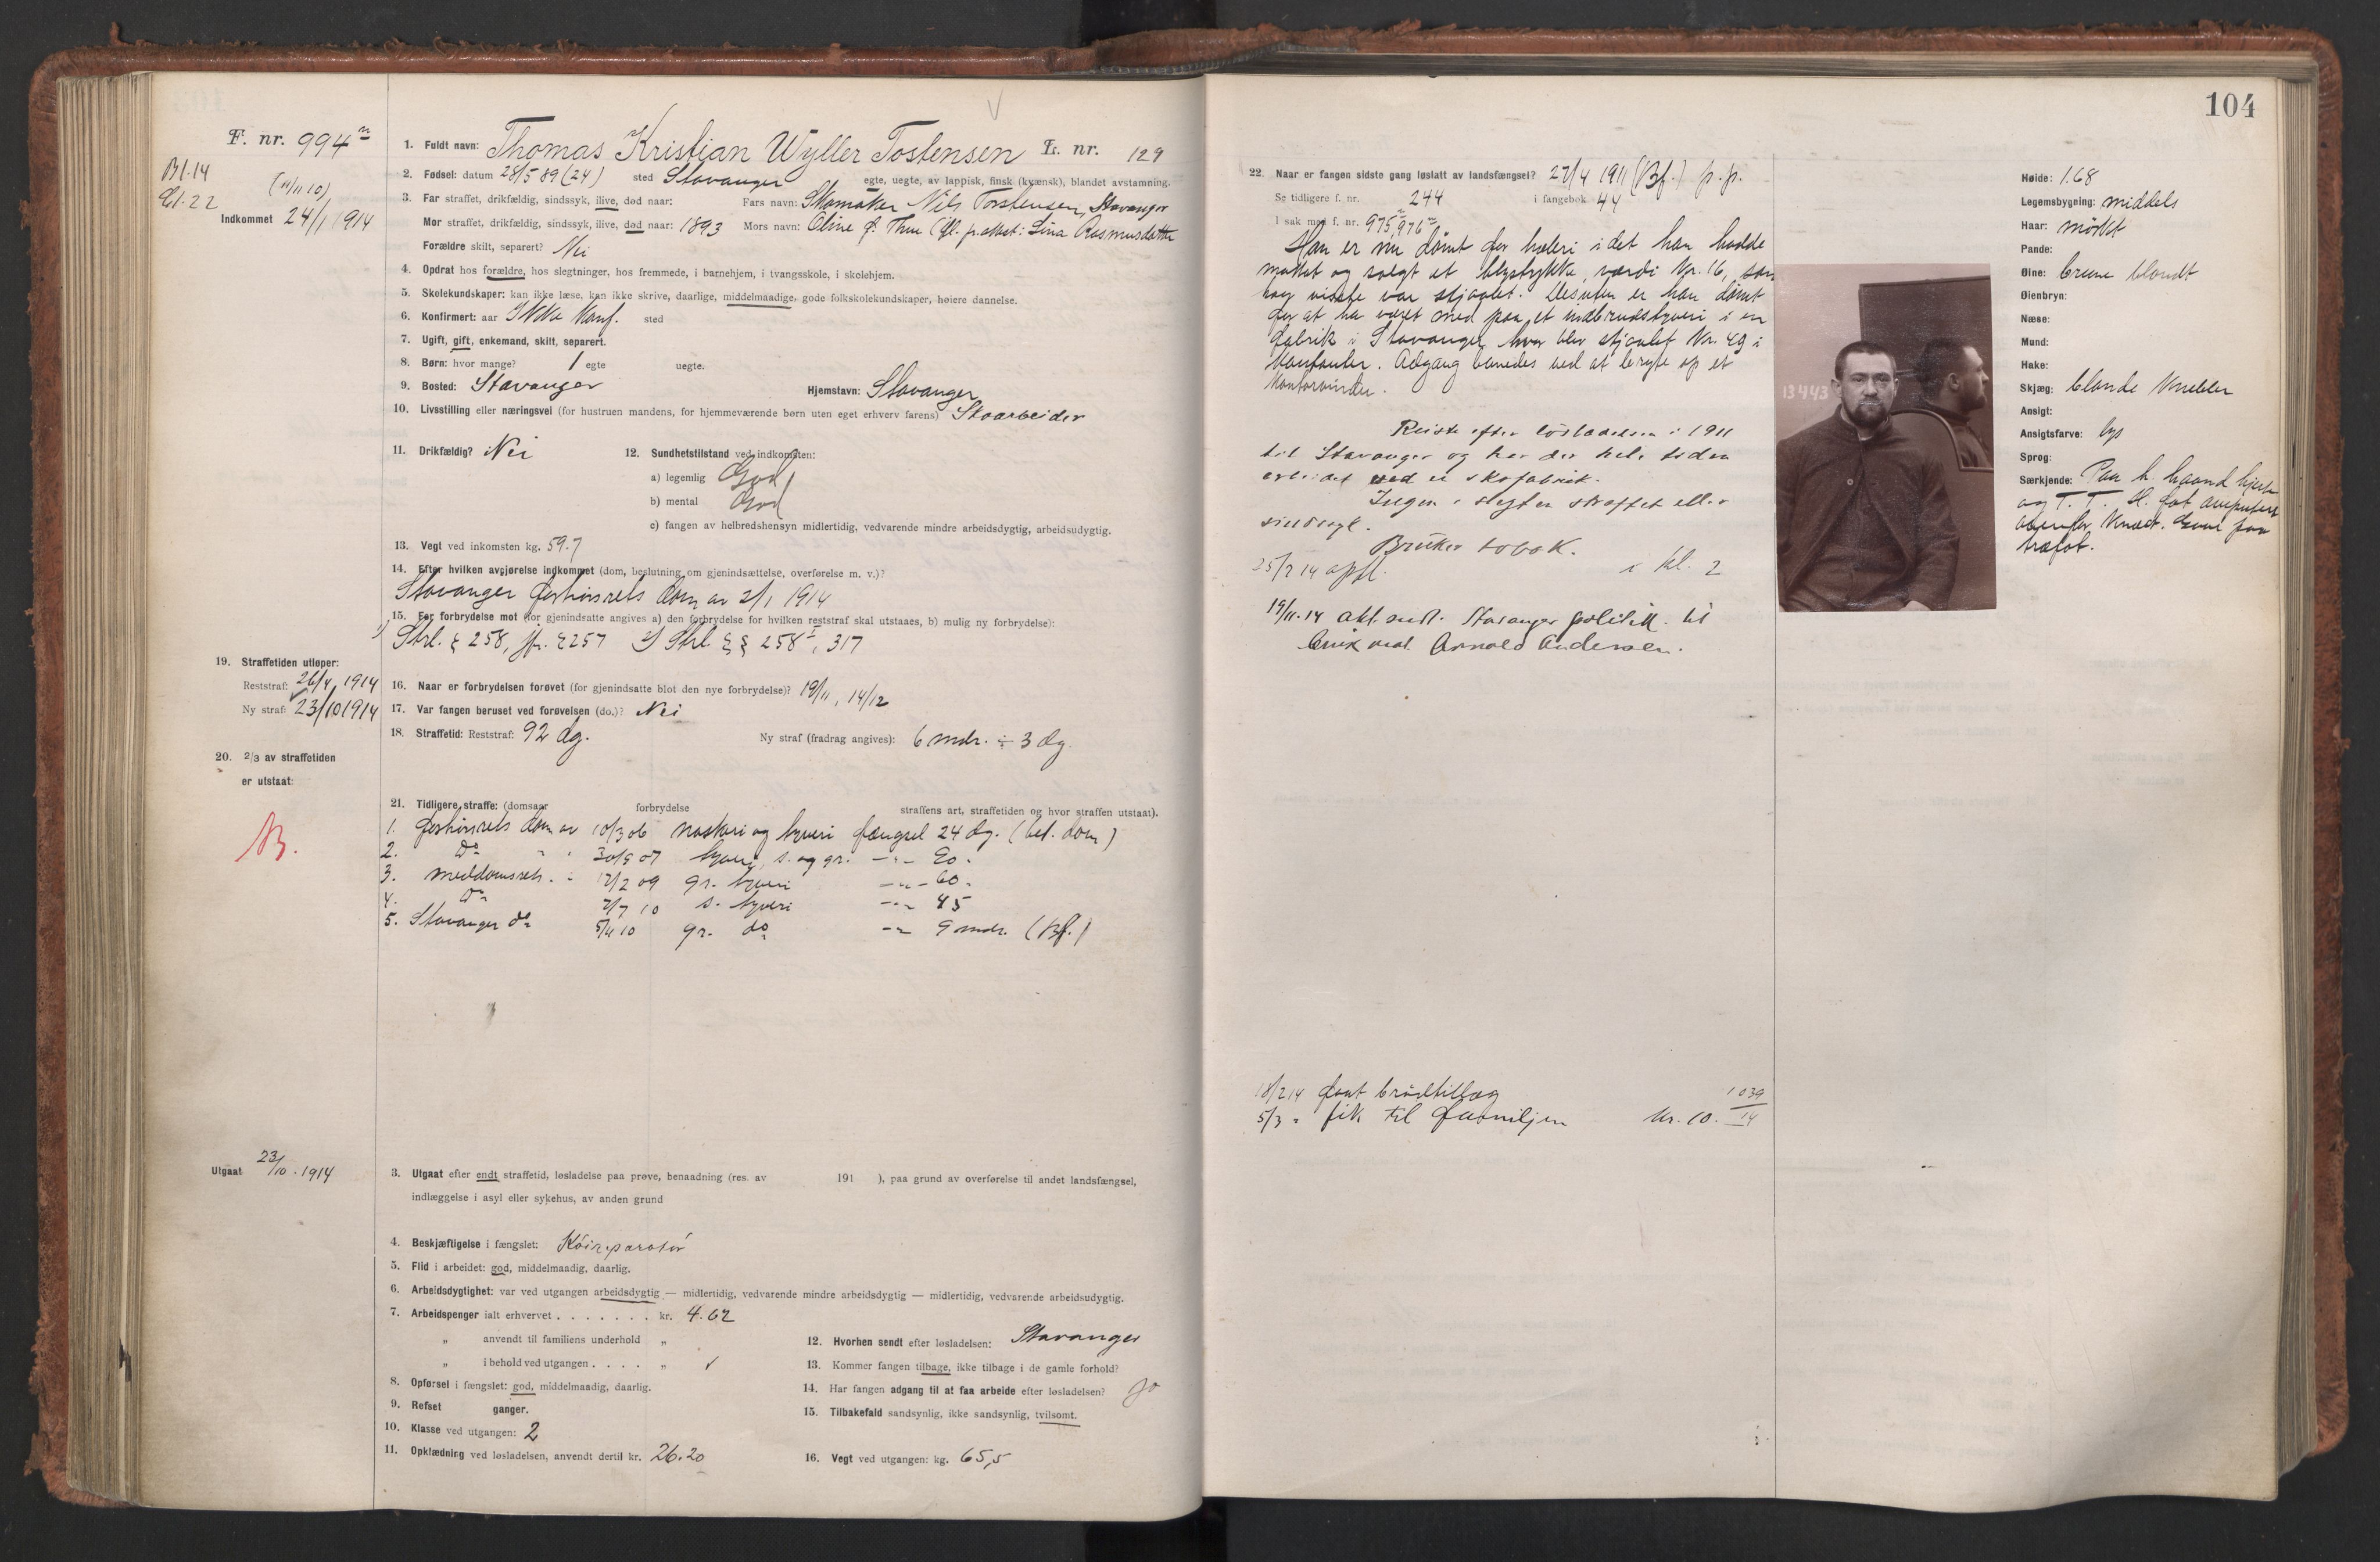 104
F. nr. 994
Bl. 14
El. 22
Indkommet 24/1 1914
1. Fuldt navn: Thomas Kristian Wyller Tostensen L. nr. 129
2. Fødsel: datum 28/5 89 (24) sted Stavanger egte, uegte, av lappisk, finsk (kvænsk), blandet avstamning.
3. Far straffet, drikfældig, sindssyk, ilive, død naar: Fars navn: Skomaker Nils Torstensen, Stavanger
Mor straffet, drikfældig, sindssyk, ilive, død naar: 1893 Mors navn: Oline f. Thu
Forældre skilt, separert? Nei
4. Opdrat hos forældre, hos slegtninger, hos fremmede, i barnehjem, i tvangsskole, i skolehjem.
5. Skolekundskaper: kan ikke læse, kan ikke skrive, daarlige, middelmaadige, gode folkskolekundskaper, høiere dannelse.
6. Konfirmert: aar Ikke konf. sted
7. Ugift, gift, enkemand, skilt, separert.
8. Børn: hvor mange? 1 egte uegte.
9. Bosted: Stavanger Hjemstavn: Stavanger
10. Livsstilling eller næringsvei (for hustruen mandens, for hjemmeværende børn uten eget erhverv farens) Skoarbeider
11. Drikfældig? Nei
12. Sundhetstilstand ved indkomsten:
a) legemlig God
b) mental God
c) fangen av helbredshensyn midlertidig, vedvarende mindre arbeidsdygtig, arbeidsudygtig.
13. Vegt ved inkomsten kg. 59.7
14. Efter hvilken avgjørelse indkommet (dom, beslutning om gjenindsættelse, overførelse m. v.)?
Stavanger forhørsrets dom av 2/1 1914
15. For forbrydelse mot (for gjenindsatte angives a) den forbrydelse for hvilken reststraf skal utstaaes, b) mulig ny forbrydelse):
1) Strl. § 258, jfr. § 257 2) Strl. §§ 258 I, 317
19. Straffetiden utløper:
Reststraf: 26/4 1914
Ny straf: 23/10 1914
16. Naar er forbrydelsen forøvet (for gjenindsatte blot den nye forbrydelse)? 19/11, 14/12
17. Var fangen beruset ved forøvelsen (do.)? Nei
18. Straffetid: Reststraf: 92 dg. Ny straf (fradrag angives): 6 mdr. ÷ 3 dg.
20. 2/3 av straffetiden
er utstaat:
B.
21. Tidligere straffe: (domsaar forbrydelse straffens art, straffetiden og hvor straffen utstaat).
1. forhørsrets dom av 10/3 06 naskeri og tyveri fængsel 24 dg. (bet. dom)
2. do " " 30/9 07 tyveri, s. og gr. -"- 90 "
3. meddomsrets " " 12/2 09 gr. tyveri -"- 60 "
4. do 7/7 10 s. tyveri -"- 45
5. Stavanger do 5/11 10 gr. do -"- 9 mdr. (Bf.)
Utgaat 23/10 . 1914
3. Utgaat efter endt straffetid, løsladelse paa prøve, benaadning (res. av 191 ), paa grund av overførelse til andet landsfængsel,
indlæggelse i asyl eller sykehus, av anden grund
4. Beskjæftigelse i fængslet:
5. Flid i arbeidet: god, middelmaadig, daarlig.
6. Arbeidsdygtighet: var ved utgangen arbeidsdygtig — midlertidig, vedvarende mindre arbeidsdygtig — midlertidig, vedvarende arbeidsudygtig.
7. Arbeidspenger ialt erhvervet . . . . . . . kr. 4.62
„ anvendt til familiens underhold „
„ i behold ved utgangen . . . . „
8. Opførsel i fængslet: god, middelmaadig, daarlig.
9. Refset ganger.
10. Klasse ved utgangen: 2
11. Opklædning ved løsladelsen, anvendt dertil kr. 26.20
12. Hvorhen sendt efter løsladelsen: Stavanger
13. Kommer fangen tilbage, ikke tilbage i de gamle forhold?
14. Har fangen adgang til at faa arbeide efter løsladelsen? Ja
15. Tilbakefald sandsynlig, ikke sandsynlig, tvilsomt.
16. Vegt ved utgangen: kg. 65,5
22. Naar er fangen sidste gang løslatt av landsfængsel? 27/4 1911 (Bf.) p.p.
Se tidligere f. nr. 244 i fangebok 44
I sak med f. nr. 975, 976
Han er nu dømt for hæleri idet han hadde
mottat og solgt et blystykke, værdi kr. 16, som
han visste var stjaalet. Desuten er han dømt
for at ha været med paa et indbrudstyveri i en
fabrik i Stavanger, hvor blev stjaalet kr. 49 i
kontanter. Adgang banedes ved at bryte op et
kontorvindu.
Reiste efter løsladelsen i 1911
til Stavanger og har der hele tiden
arbeidet ved en skofabrik.
Ingen i slegten straffet eller
sindssyk.
Bruker tobak.
25/2 14 opfl. i kl. 2
19/11.14 akt. sendt Stavanger politik. til
bruk mot Arnold Andersen.
18/2 14 faat brødtillæg
5/3 " fik til familjen kr. 10. 1039/14
13443
Høide: 1.68
Legemsbygning: middels
Haar: mørkt
Pande:
Øine: brune blandt
Øienbryn:
Næse:
Mund:
Hake:
Skjæg: blonde knebler
Ansigt:
Ansigtsfarve: lys
Sprog:
Særkjende: Paa h. haand hjerte
og T. T. H. fot amputert
ovenfor knæet. Gaar paa
træfot.